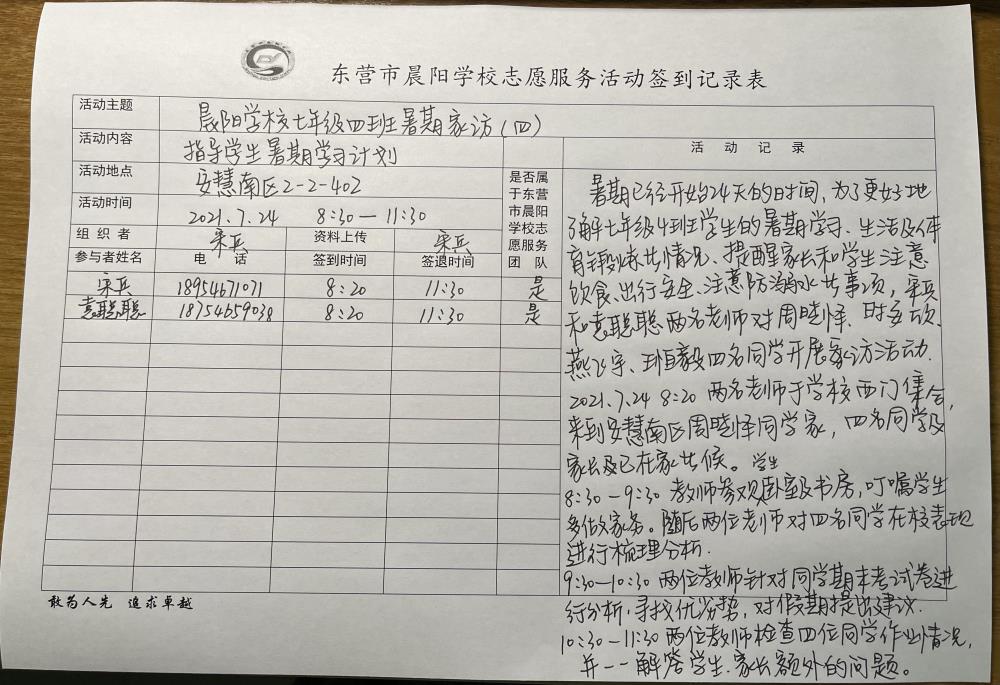 东营市晨阳学校志愿服务活动签到记录表
活动主题 晨阳学校七年级四班暑期家访(四)
活动内容 指导学生暑期学习计划
活动地点 安慧南区2-2-402
活动时间 2021.7.24 8:30—11:30
组织者 宋兵 资料上传 宋兵
参与者姓名 电话 签到时间 签退时间
是否属
于东营
市晨阳
学校志
愿服务
团队
宋兵 18954671071 8:20 11:30 是
袁聪聪 18754659038 8:20 11:30 是
活动记录
暑期已经开始24天的时间,为了更好地
了解七年级4班学生的暑期学习、生活及体
育锻炼共情况、提醒家长和学生注意
饮食、出行安全、注意防溺水共事项,宋兵
和袁聪聪两名老师对周晓怿、时
燕飞宇、毅四名同学开展家访活动.
2021.7.24 8:20 两名老师于学校西门集合,
来到安慧南区周晓怿同学家,四名同学及
家长及已在家共候。学生
8:30-9:30 教师参观卧室及书房,叮嘱学生
多做家务。随后两位老师对四名同学在校表现
进行梳理分析.
9:30—10:30 两位教师针对同学期末考试卷进
行分析,寻找优劣势,对假期提出建议.
10:30-11:30 两位教师检查四位同学作业情况,
并一一解答学生、家长额外的问题。
敢为人先 追求卓越